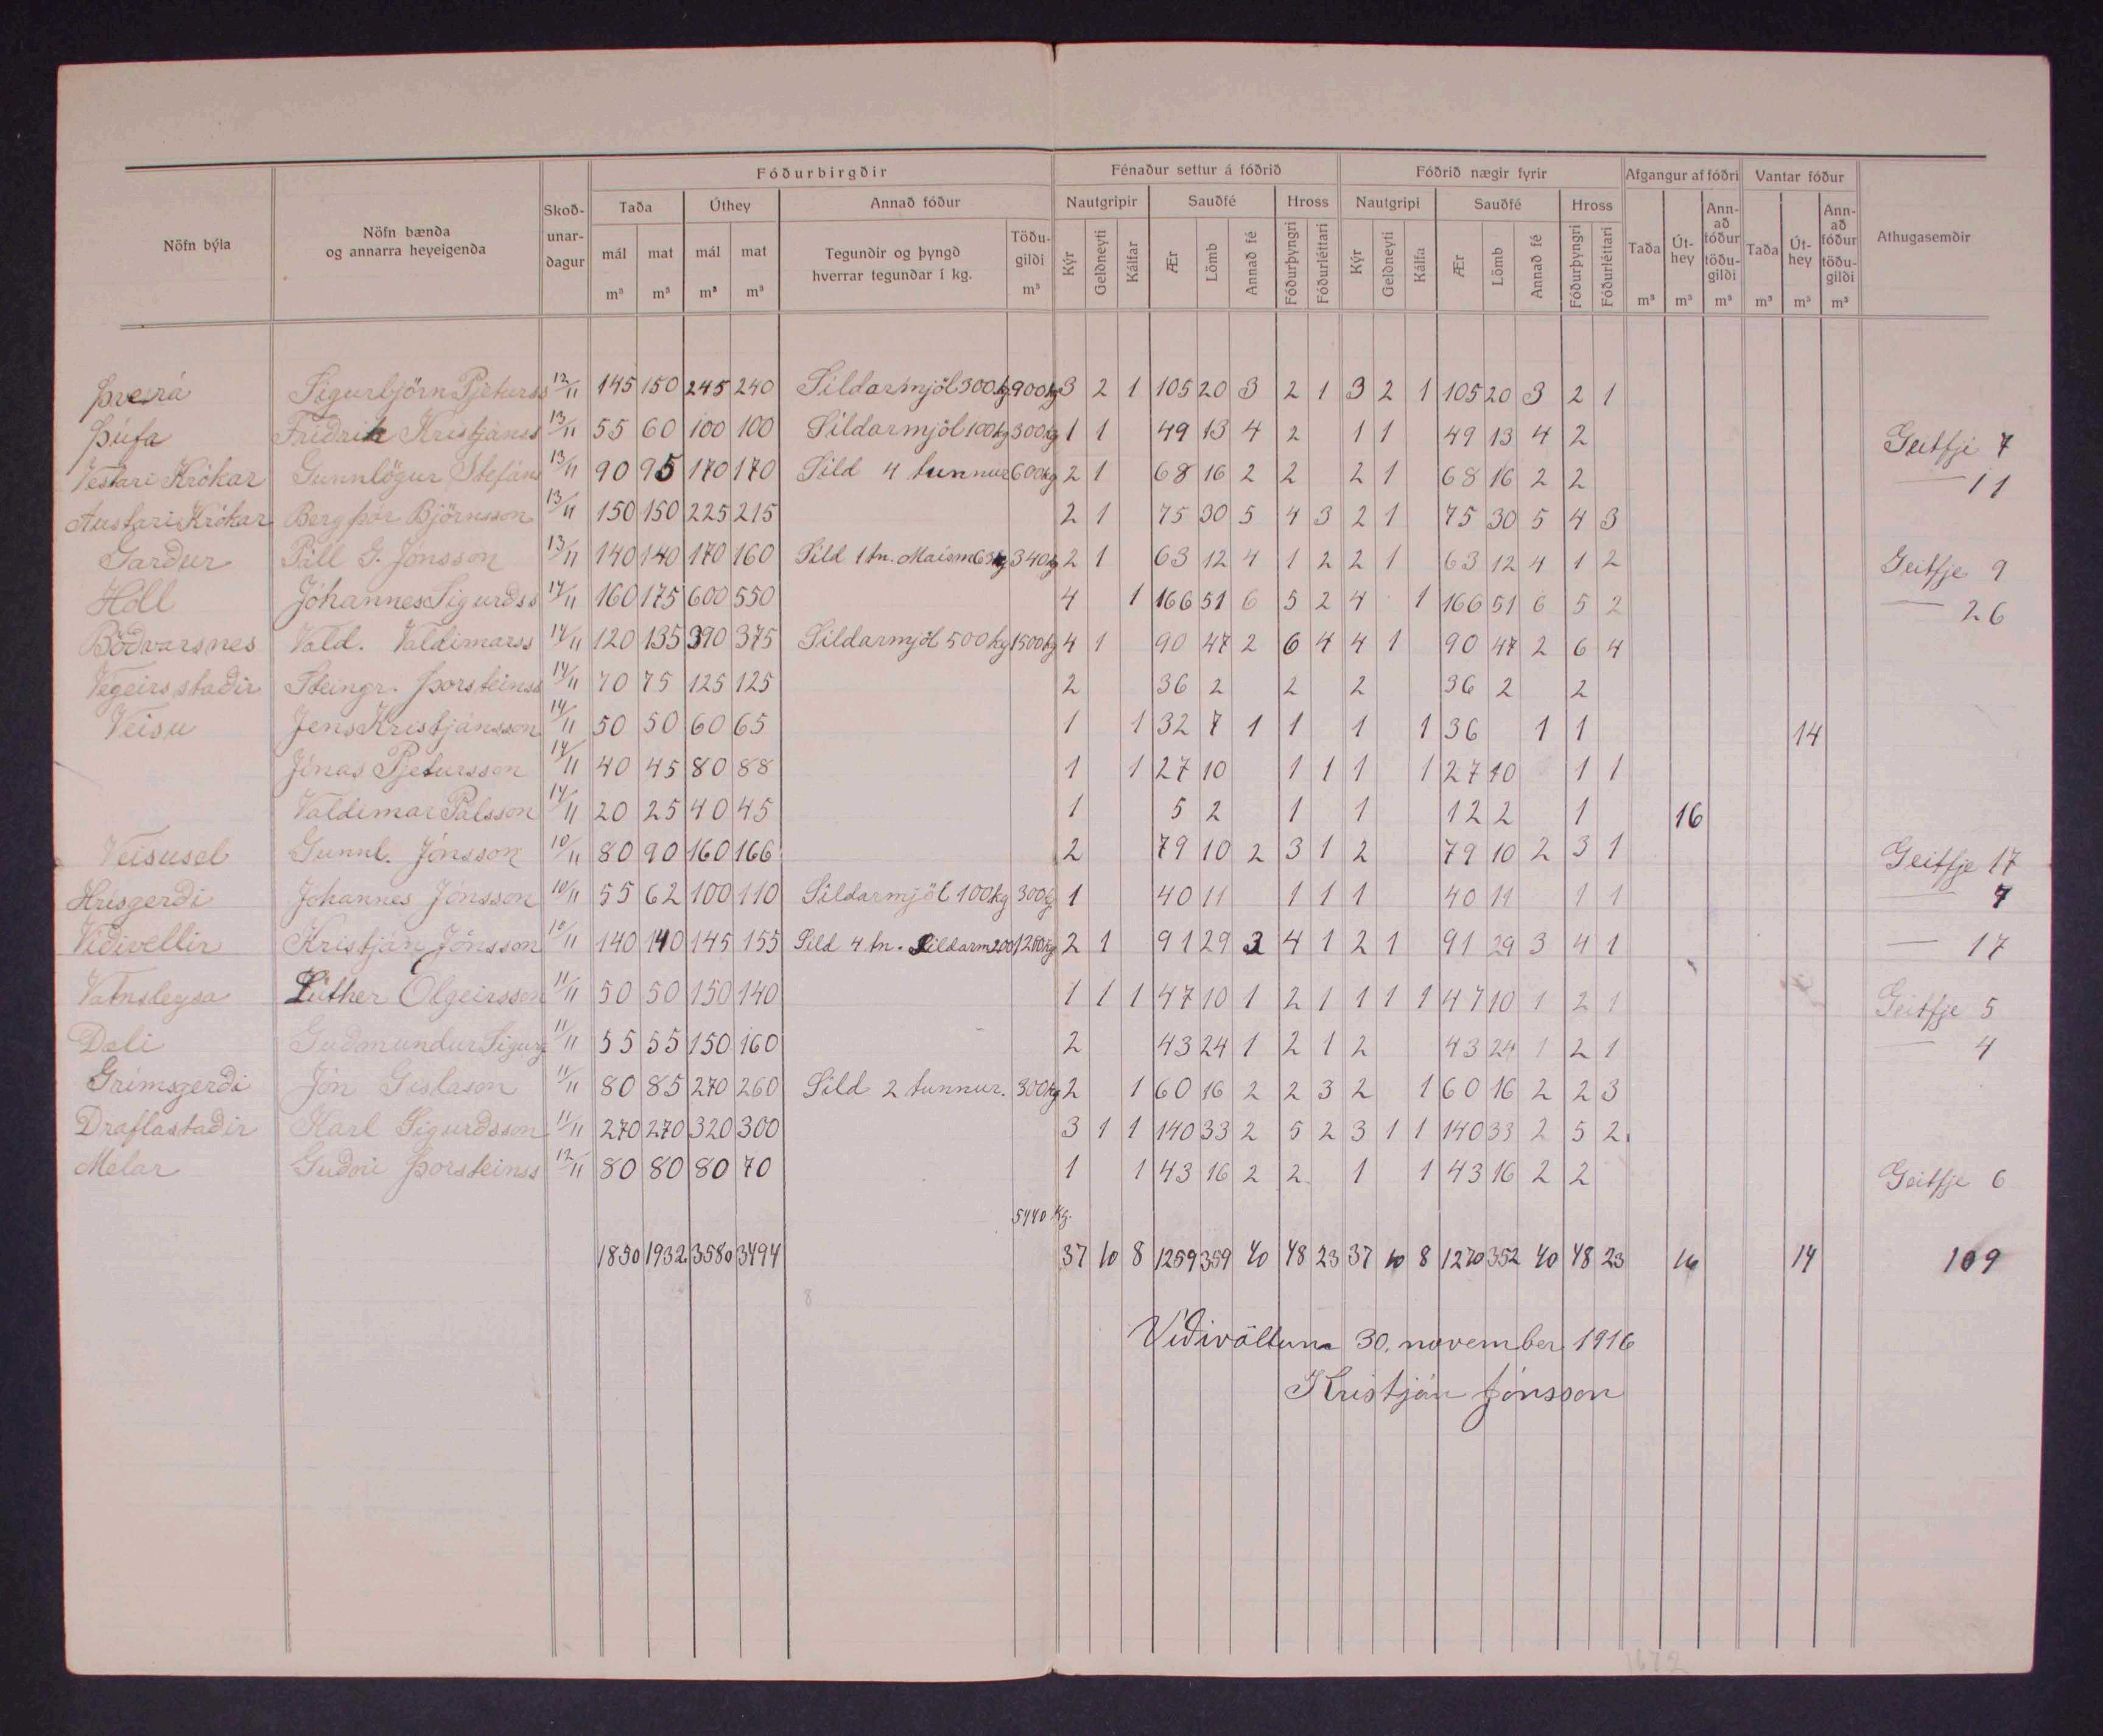 Fóðurbirgðir Fénaður settur á fóðrið Fóðrið nægir fyrir Afgangur af fóðri Vantar fóður
Nöfn býla Nöfn bænda og annarra heyeigenda Skoð-unar-dagur Taða Úthey Annað fóður Nautgripir Sauðfé Hross Nautgripi Sauðfé Hross Taða Út-hey Ann-að fóður töðu-gildi Taða Út-hey Ann-að fóður töðu-gildi Athugasemdir
mál mat mál mat Tegundir og þyngd hverrar tegundar í kg. Töðu-gildi Kýr Geldneyti Kálfar Ær Lömb Annað fé Fóðurþyngri Fóðurléttari Kýr Geldneyti Kálfa Ær Lömb Annað fé Fóðurþyngri Fóðurléttari
m³ m³ m³ m³ m³ m³ m³ m³ m³ m³ m³
Þverá Sigurbjörn Pjeturss 12/11 145 150 245 240 Síldarmjöl 300 kg 900 kg 3 2 1 105 20 3 2 1 3 2 1 105 20 3 2 1
Þúfa Friðrik Kristjánss 13/11 55 60 100 100 Síldarmjöl 100 kg 300 kg 1 1 49 13 4 2 1 1 49 13 4 2 Geitfje 7
Vestari Krókar Gunnlögur Stefáns 13/11 90 95 170 170 Síld 4 tunnur 600 kg 2 1 68 16 2 2 2 1 68 16 2 2 — 11
Austari Krókar Bergþór Björnsson 13/11 150 150 225 215 2 1 75 30 5 4 3 2 1 75 30 5 4 3
Garður Páll G. Jónsson 13/11 140 140 170 160 Síld 1 tn. Maísm 63 kg 340 kg 2 1 63 12 4 1 2 2 1 63 12 4 1 2 Geitfje 9
Hóll Jóhannes Sigurðss 14/11 160 175 600 550 4 1 166 51 6 5 2 4 1 166 51 6 5 2 — 26
Böðvarsnes Vald. Valdimarss 14/11 120 135 390 375 Síldarmjöl 500 kg 1500 kg 4 1 90 47 2 6 4 4 1 90 47 2 6 4
Vegeirsstaðir Steingr. Þorsteinss 14/11 70 75 125 125 2 36 2 2 2 36 2 2
Veisu Jens Kristjánsson 14/11 50 50 60 65 1 1 32 7 1 1 1 1 36 1 1 14
Jónas Pjetursson 14/11 40 45 80 88 1 1 27 10 1 1 1 1 27 10 1 1
Valdimar Pálsson 14/11 20 25 40 45 1 5 2 1 1 12 2 1 16
Veisusel Gunnl. Jónsson 10/11 80 90 160 166 2 79 10 2 3 1 2 79 10 2 3 1 Geitfje 17
Hrísgerði Jóhannes Jónsson 10/11 55 62 100 110 Síldarmjöl 100 kg 300 kg 1 40 11 1 1 1 40 11 1 1 — 7
Víðivellir Kristján Jónsson 10/11 140 140 145 155 Síld 4 tn. Síldarm 200 1200 kg 2 1 91 29 3 4 1 2 1 91 29 3 4 1 — 17
Vatnsleysa Lúther Olgeirsson 11/11 50 50 150 140 1 1 1 47 10 1 2 1 1 1 1 47 10 1 2 1 Geitfje 5
Dæli Guðmundur Sigurg 11/11 55 55 150 160 2 43 24 1 2 1 2 43 24 1 2 1 — 4
Grímsgerði Jón Gíslason 11/11 80 85 270 260 Síld 2 tunnur. 300 kg 2 1 60 16 2 2 3 2 1 60 16 2 2 3
Draflastaðir Karl Sigurðsson 11/11 270 270 320 300 3 1 1 140 33 2 5 2 3 1 1 140 33 2 5 2
Melar Guðni Þorsteinss 12/11 80 80 80 70 1 1 43 16 2 2 1 1 43 16 2 2 Geitfje 6
5440 kg.
1850 1932 3580 3494 37 10 8 1259 359 40 48 23 37 10 8 1270 352 40 48 23 16 14 109
Víðivöllum 30. november 1916
Kristján Jónsson